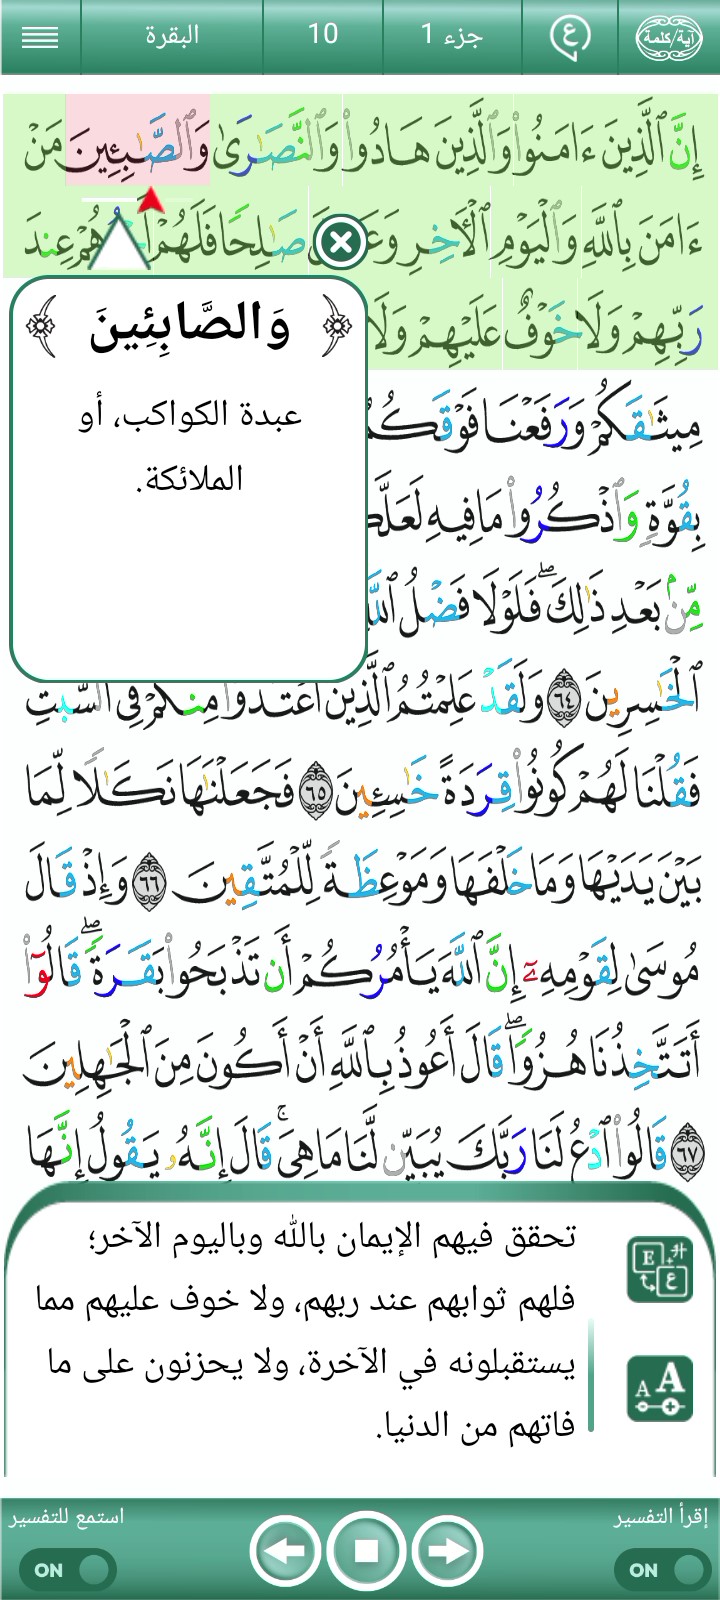 آية/كلمة
ع
جزء 1
10
البقرة
إِنَّ ٱلَّذِينَ ءَامَنُوا۟ وَٱلَّذِينَ هَادُوا۟ وَٱلنَّصَـٰرَىٰ وَٱلصَّـٰبِـِٔينَ مَنْ
ءَامَنَ بِٱللَّهِ وَٱلْيَوْمِ ٱلْـَٔاخِرِ صَـٰلِحًا فَلَهُمْ عِندَ
رَبِّهِمْ وَلَا خَوْفٌ عَلَيْهِمْ وَلَا
﴿ وَالصَّابِئِينَ ﴾
عبدة الكواكب، أو
الملائكة.
مِيثَـٰقَكُمْ وَرَفَعْنَا فَوْقَكُمُ
بِقُوَّةٍ وَٱذْكُرُوا۟ مَا فِيهِ
مِّنۢ بَعْدِ ذَٰلِكَ ۖ فَلَوْلَا فَضْلُ
ٱلْخَـٰسِرِينَ ٦٤ وَلَقَدْ عَلِمْتُمُ ٱلَّذِينَ ٱعْتَدَوْا۟ مِنكُمْ فِى ٱلسَّبْتِ
فَقُلْنَا لَهُمْ كُونُوا۟ قِرَدَةً خَـٰسِـِٔينَ ٦٥ فَجَعَلْنَـٰهَا نَكَـٰلًا لِّمَا
بَيْنَ يَدَيْهَا وَمَا خَلْفَهَا وَمَوْعِظَةً لِّلْمُتَّقِينَ ٦٦ وَإِذْ قَالَ
مُوسَىٰ لِقَوْمِهِۦٓ إِنَّ ٱللَّهَ يَأْمُرُكُمْ أَن تَذْبَحُوا۟ بَقَرَةً ۖ قَالُوٓا۟
أَتَتَّخِذُنَا هُزُوًا ۖ قَالَ أَعُوذُ بِٱللَّهِ أَنْ أَكُونَ مِنَ ٱلْجَـٰهِلِينَ
٦٧ قَالُوا۟ ٱدْعُ لَنَا رَبَّكَ يُبَيِّن لَّنَا مَا هِىَ ۚ قَالَ إِنَّهُۥ يَقُولُ إِنَّهَا
تحقق فيهم الإيمان بالله وباليوم الآخر؛
فلهم ثوابهم عند ربهم، ولا خوف عليهم مما
يستقبلونه في الآخرة، ولا يحزنون على ما
فاتهم من الدنيا.
E ع
A A
إقرأ التفسير
استمع للتفسير
ON
ON